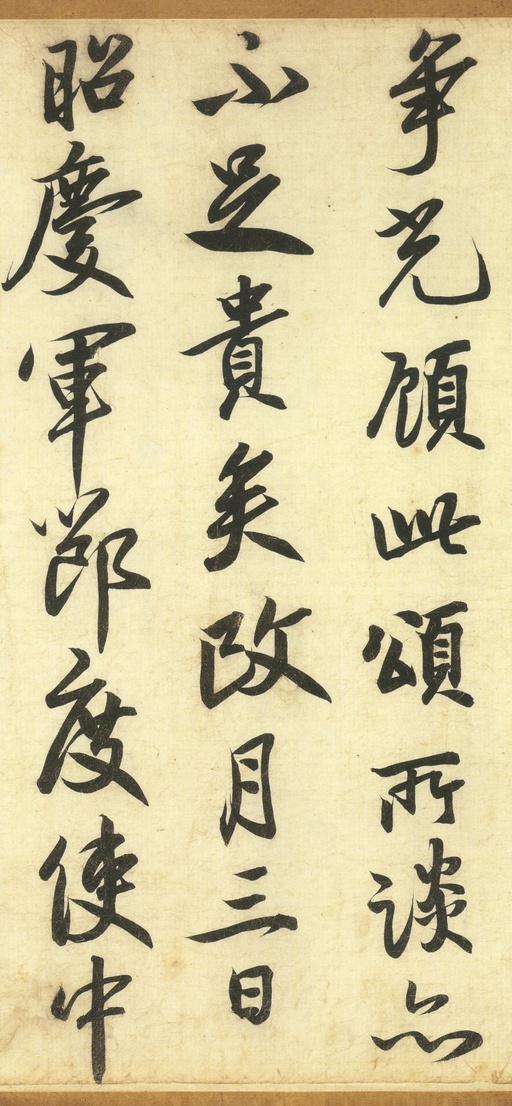 爭光顧此頌所談亦
不足貴矣政月三日
昭慶軍節度使中